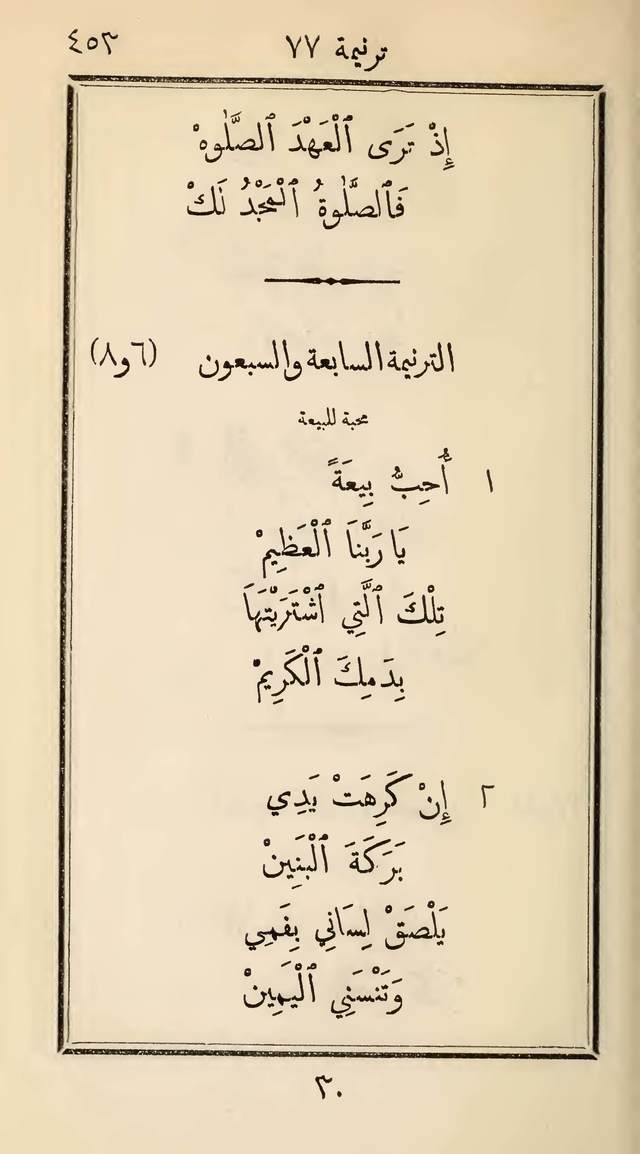 ترنيمة ٧٧ ٤٥٣
إِذْ تَرَى ٱلْعَهْدَ ٱلصَّلٰوهْ
فَٱلصَّلٰوةُ ٱلْمَجْدُ لَكْ
الترنيمة السابعة والسبعون (٦و٨)
محبة للبيعة
١ أُحِبُّ بِيعَةً
يَا رَبَّنَا ٱلْعَظِيمْ
تِلْكَ ٱلَّتِي ٱشْتَرَيْتَهَا
بِدَمِكَ ٱلْكَرِيمْ
٢ إِنْ كَرِهَتْ يَدِي
بَرَكَةَ ٱلْبَنِينْ
يَلْصَقْ لِسَانِي بِفَمِي
وَتَنْسَنِي ٱلْيَمِينْ
٣٠